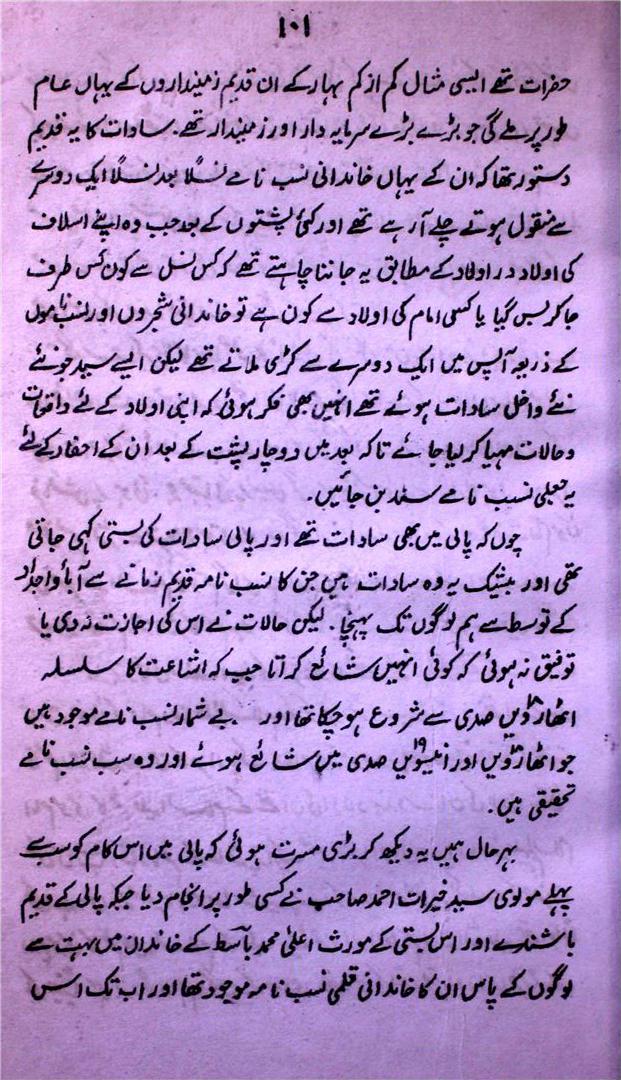 ۱۰۱
حضرات تھے ایسی مثال کم از کم بہار کے ان قدیم زمینداروں کے یہاں عام
طور پر ملے گی جو بڑے بڑے سرمایہ دار اور زمیندار تھے۔ سادات کا یہ قدیم
دستور تھا کہ ان کے یہاں خاندانی نسب نامے نسلاً بعد نسلاً ایک دوسرے
سے منقول ہوتے چلے آرہے تھے اور کئی پشتوں کے بعد جب وہ اپنے اسلاف
کی اولاد در اولاد کے مطابق یہ جاننا چاہتے تھے کہ کس نسل سے کون کس طرف
جا کر بس گیا یا کسی امام کی اولاد سے کون ہے تو خاندانی شجروں اور نسب ناموں
کے ذریعہ آپس میں ایک دوسرے سے کڑی ملاتے تھے لیکن ایسے سید جو نئے
نئے داخل سادات ہوئے تھے انہیں بھی فکر ہوئی کہ اپنی اولاد کے لئے واقعات
و حالات مہیا کر لیا جائے تاکہ بعد میں دو چار پشت کے بعد ان کے احفاد کے لئے
یہ جعلی نسب نامے سند بن جائیں۔
چوں کہ پالی میں بھی سادات تھے اور پالی سادات کی بستی کہی جاتی
تھی اور بیشک یہ وہ سادات ہیں جن کا نسب نامہ قدیم زمانے سے آباؤ اجداد
کے توسط سے ہم لوگوں تک پہنچا۔ لیکن حالات نے اس کی اجازت نہ دی یا
توفیق نہ ہوئی کہ کوئی انہیں شائع کراتا جب کہ اشاعت کا سلسلہ
اٹھارویں ۱۸ صدی سے شروع ہو چکا تھا اور بے شمار نسب نامے موجود ہیں
جو اٹھارویں ۱۸ اور انیسویں ۱۹ صدی میں شائع ہوئے اور وہ سب نسب نامے
تحقیقی ہیں۔
بہر حال ہمیں یہ دیکھ کر بڑی مسرت ہوئی کہ پالی میں اس کام کو سب سے
پہلے مولوی سید خیرات احمد صاحب نے کسی طور پر انجام دیا جبکہ پالی کے قدیم
باشندے اور اس بستی کے مورث اعلیٰ محمد باسط کے خاندان میں بہت سے
لوگوں کے پاس ان کا خاندانی قلمی نسب نامہ موجود تھا اور اب تک اس